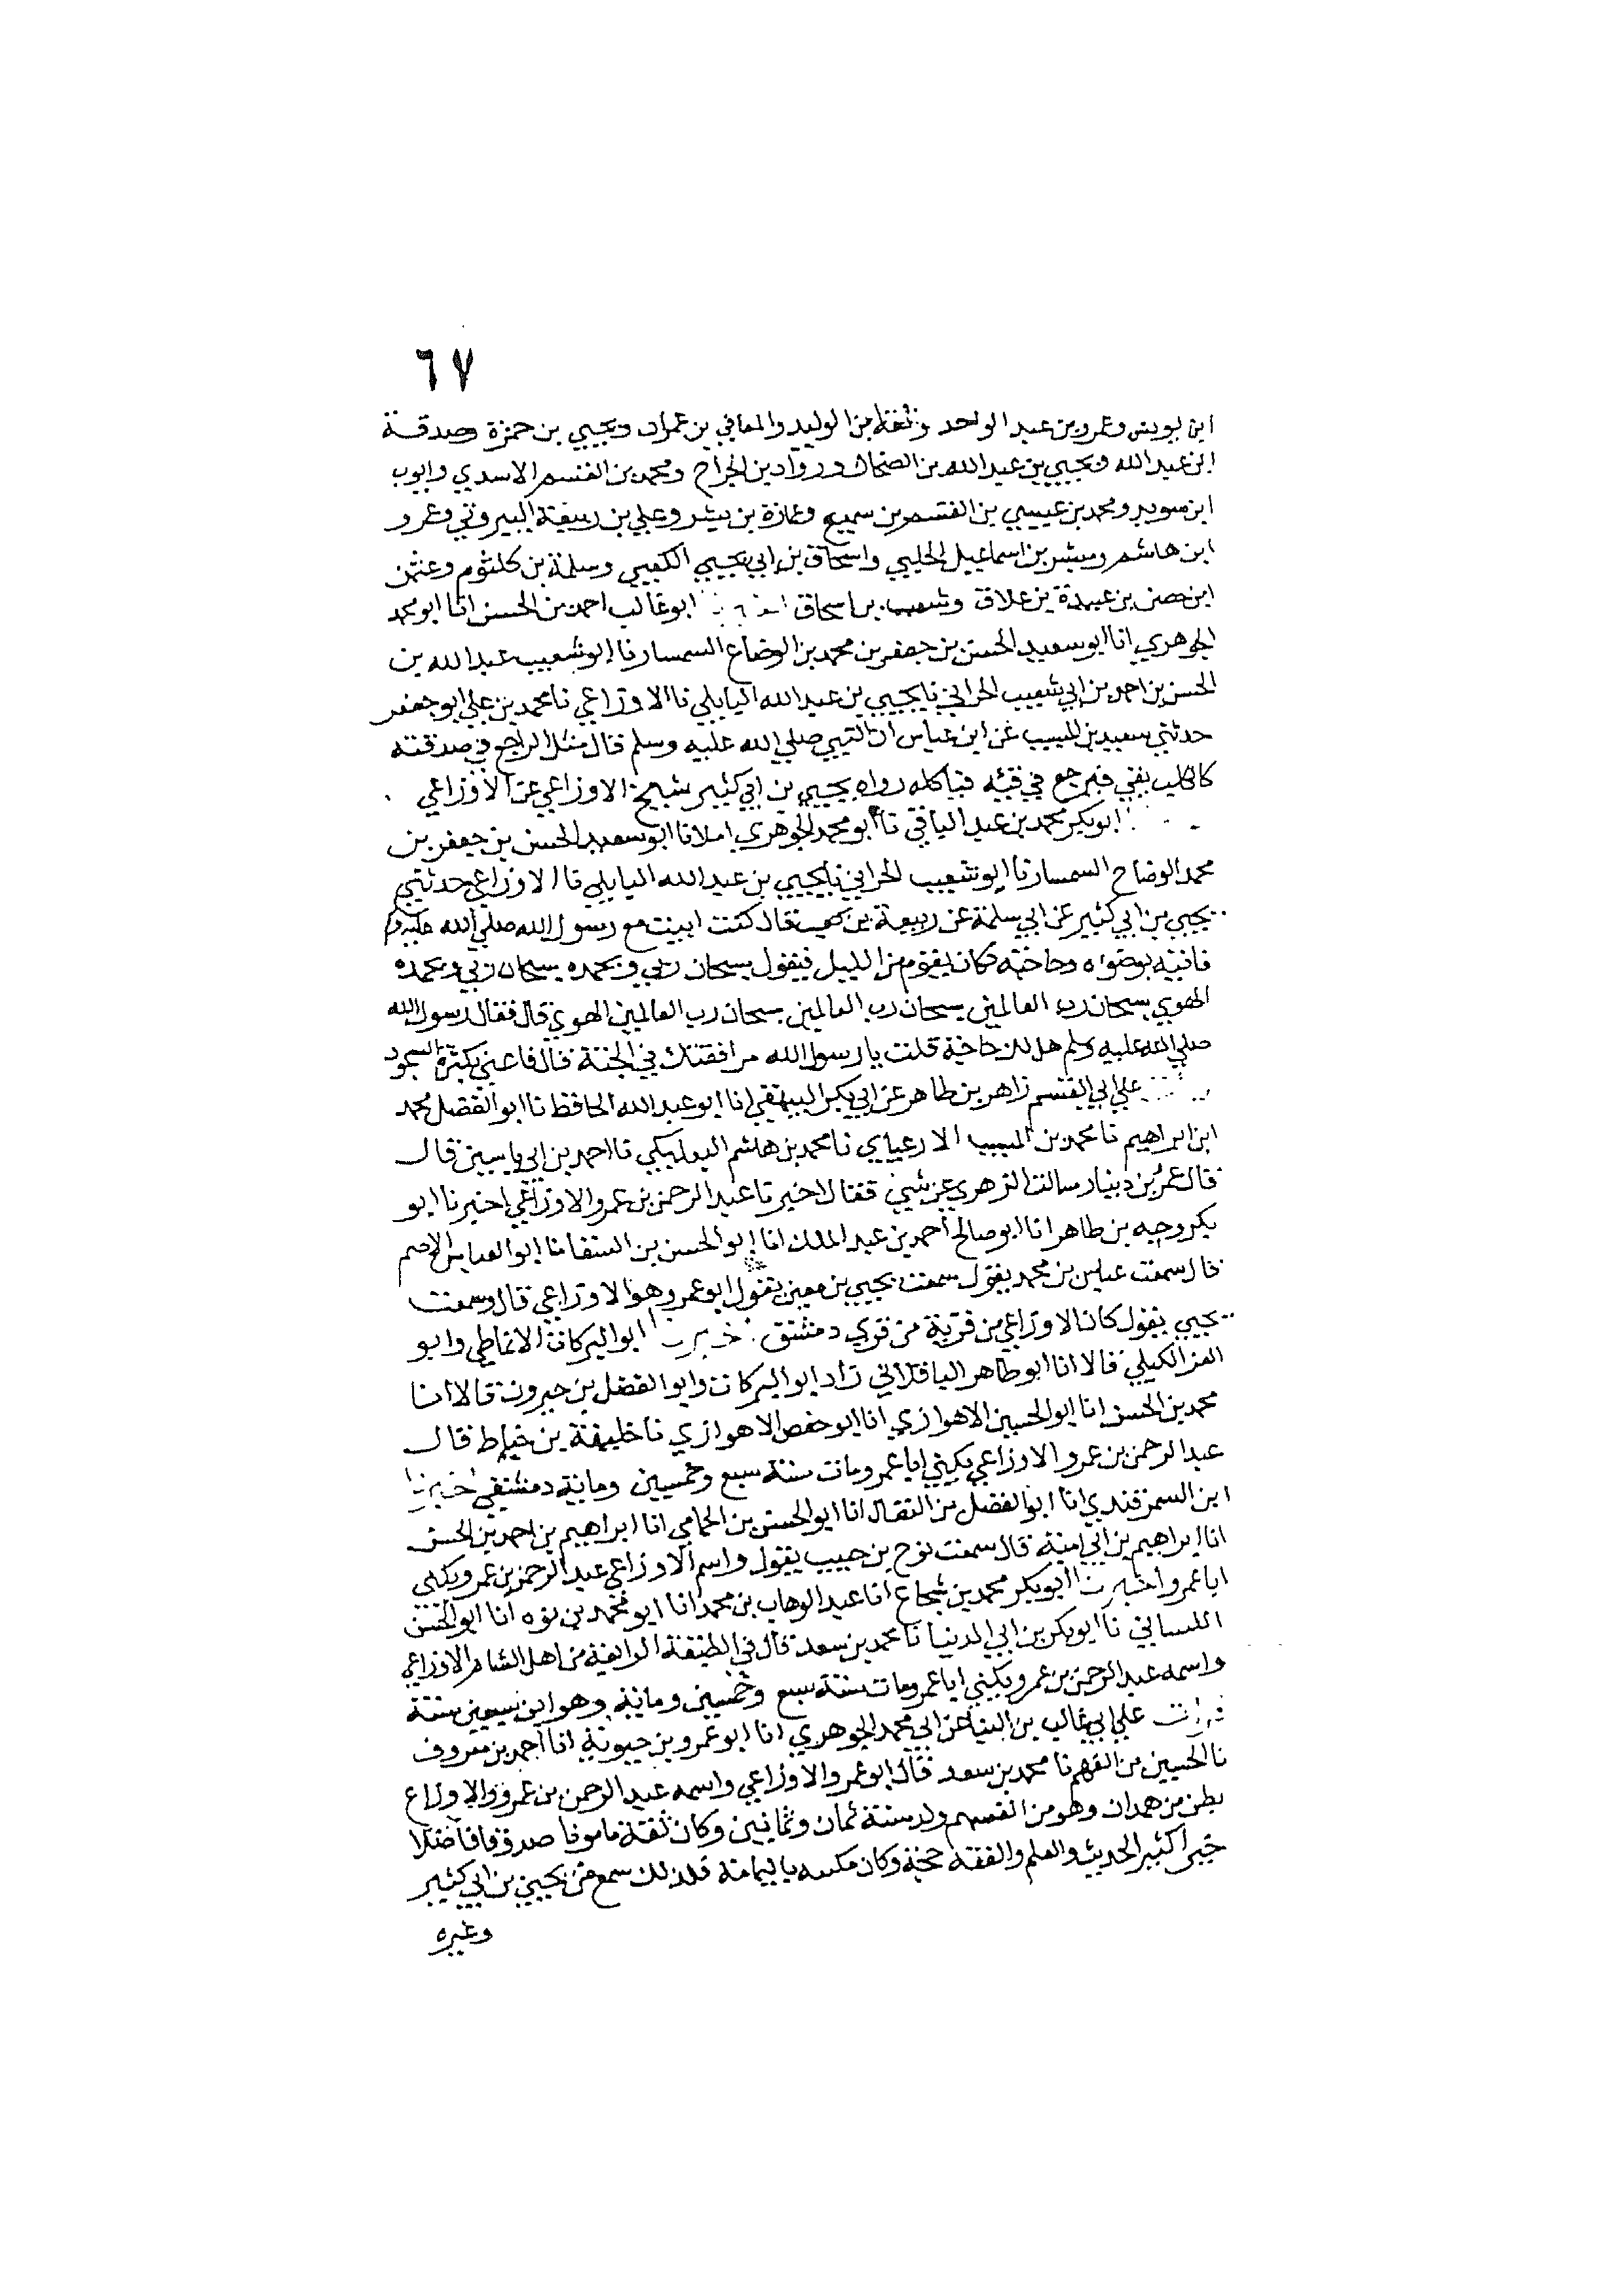 ٦٧
ابن يونس وعمرو بن عبد الواحد وبقية بن الوليد والمعافي بن عمران ويحيي بن حمزة وصدقة
ابن عبد الله ويحيي بن عبد الله بن الضحاك ورواد بن الجراح ومحمد بن القسم الاسدي وايوب
ابن سويد ومحمد بن عيسي بن القسم بن سميع وعمارة بن بشر وعلي بن ربيعة البيروتي وعمرو
ابن هاشم ومبشر بن اسماعيل الحلبي واسحاق بن ابي يحيي الكعبي وسلمة بن كلثوم وعثمن
ابن حصن بن عبيدة بن علاق وشعيب بن اسحاق ابو غالب احمد بن الحسن انا ابو محمد
الجوهري انا ابو سعيد الحسن بن جعفر بن محمد بن الوضاح السمسار نا ابو شعيب عبد الله بن
الحسن بن احمد بن ابي شعيب الحراني نا يحيي بن عبد الله البابلي نا الاوزاعي نا محمد بن علي ابو جعفر
حدثني سعيد بن المسيب عن ابن عباس ان النبي صلي الله عليه وسلم قال مثل الراجع في صدقته
كالكلب يقي فيرجع في قيئه فياكله رواه يحيي بن ابي كثير شيخ الاوزاعي عن الاوزاعي
ابو بكر محمد بن عبد الباقي نا ابو محمد الجوهري املانا ابو سعيد الحسن بن جعفر بن
محمد الوضاح السمسار نا ابو شعيب الحراني نا يحيي بن عبد الله البابلي نا الاوزاعي حدثني
يحيي بن ابي كثير عن ابي سلمة عن ربيعة بن كعب قال كنت ابيت مع رسول الله صلي الله عليه وسلم
فاتيه بوضواه وحاجته فكان يقوم من الليل فيقول سبحان ربي وبحمده سبحان ربي وبحمده
الهوي سبحان رب العالمين سبحان رب العالمين سبحان رب العالمين الهوي قال فقال رسول الله
صلي الله عليه وسلم هل لك حاجة قلت يا رسول الله مرافقتك في الجنة قال فاعني بكثرة السجود
علي ابي القسم زاهر بن طاهر عن ابي بكر البيهقي انا ابو عبد الله الحافظ نا ابو الفضل محمد
ابن ابراهيم نا محمد بن المسيب الارغياني نا محمد بن هاشم البعلبكي نا احمد بن ابي ياسين قال
قال عمر بن دينار سالت الزهري عن شي فقال اخبرنا عبد الرحمن بن عمرو الاوزاعي اخبرنا ابو
بكر وجيه بن طاهر انا ابو صالح احمد بن عبد الملك انا ابو الحسن بن السقا نا ابو العباس الاصم
قال سمعت عباس بن محمد يقول سمعت يحيي بن معين يقول ابو عمرو هو الاوزاعي قال وسمعت
يحيي يقول كان الاوزاعي من قرية من قري دمشق اخبرنا ابو البركات الانماطي وابو
العز الكيلي قالا انا ابو طاهر الباقلاني زاد ابو البركات وابو الفضل بن خيرون قالا انا
محمد بن الحسن انا ابو الحسين الاهوازي انا ابو حفص الاهوازي نا خليفة بن خياط قال
عبد الرحمن بن عمرو الاوزاعي يكني ابا عمرو مات سنة سبع وخمسين وماية دمشقي اخبرنا
ابن السمرقندي انا ابو الفضل بن البقال انا ابو الحسن بن الحمامي انا ابراهيم بن احمد بن الحسن
انا ابراهيم بن ابي امية قال سمعت نوح بن حبيب يقول واسم الاوزاعي عبد الرحمن بن عمرو يكني
ابا عمرو اخبرنا ابو بكر محمد بن شجاع انا عبد الوهاب بن محمد انا ابو محمد بن يوه انا ابو الحسن
اللنباني نا ابو بكر بن ابي الدنيا نا محمد بن سعد قال في الطبقة الرابعة من اهل الشام الاوزاعي
واسمه عبد الرحمن بن عمرو يكني ابا عمرو مات سنة سبع وخمسين وماية وهو ابن سبعين سنة
قرات علي ابي غالب بن البنا عن ابي محمد الجوهري انا ابو عمرو بن حيوية انا احمد بن معروف
نا الحسين بن الفهم نا محمد بن سعد قال ابو عمرو الاوزاعي واسمه عبد الرحمن بن عمرو والاوزاع
بطن من همدان وهو من انفسهم ولد سنة ثمان وثمانين وكان ثقة مامونا صدوقا فاضلا
خيرا كثير الحديث والعلم والفقه حجة وكان مكتبه باليمامة فلذلك سمع من يحيي بن ابي كثير
وغيره